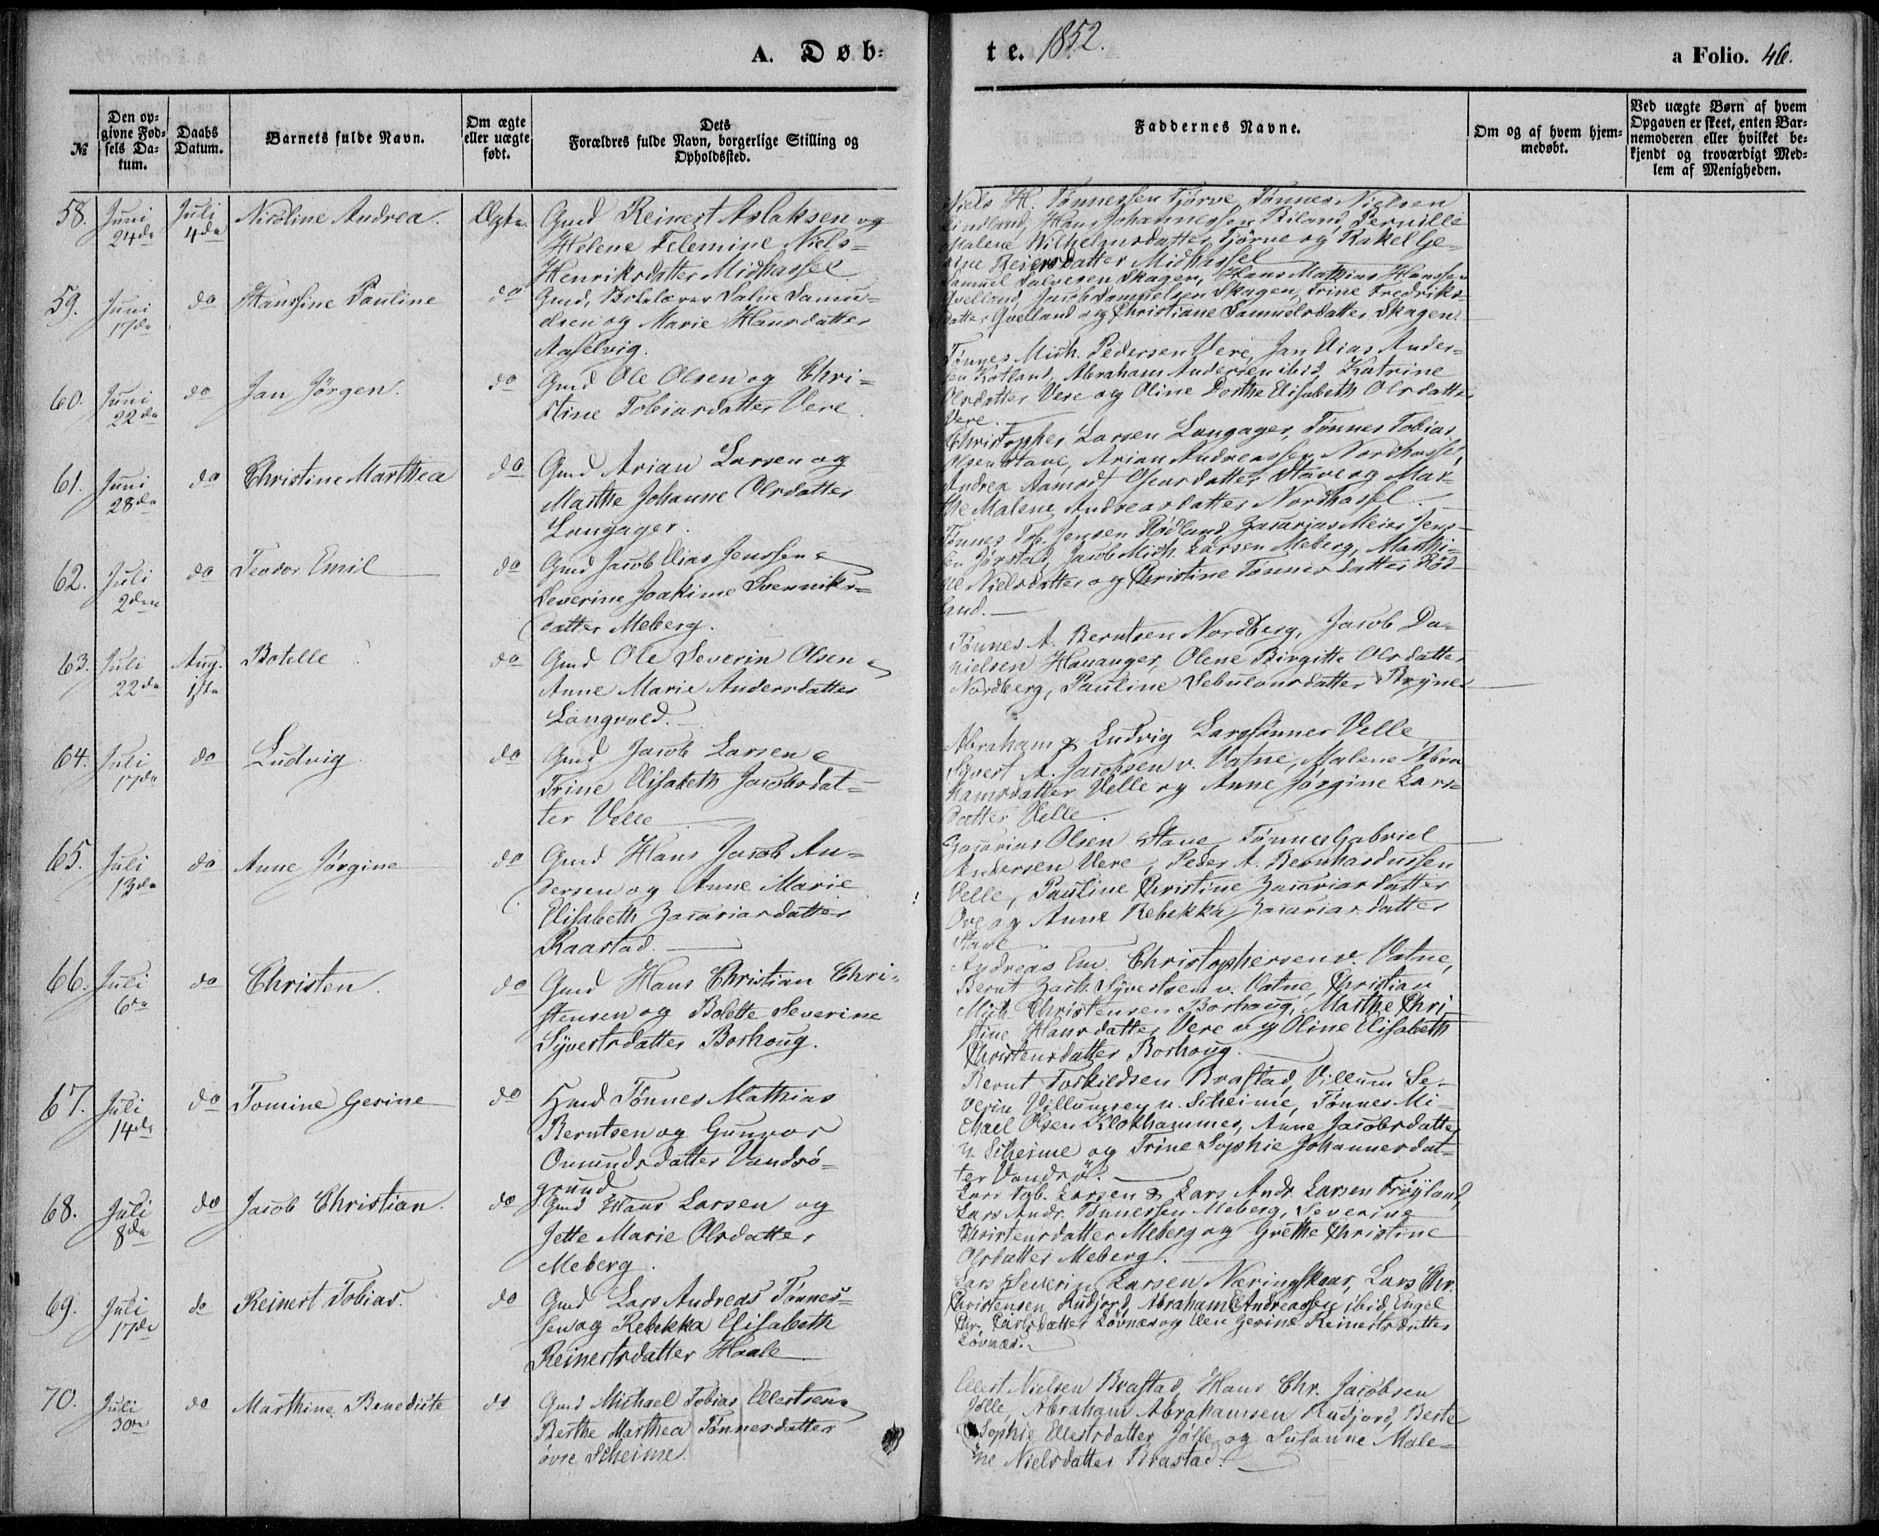 A. Døb-
te. 1852.
a Folio. 46.
№
Den op-
givne Fød-
sels Da-
tum.
Daabs
Datum.
Barnets fulde Navn.
Om ægte
eller uægte
født.
Dets
Forældres fulde Navn, borgerlige Stilling og
Opholdssted.
Faddernes Navne.
Om og af hvem hjem-
medøbt.
Ved uægte Børn af hvem
Opgaven er skeet, enten Bar-
nemoderen eller hvilket be-
kjendt og troværdigt Med-
lem af Menigheden.
58. Juni 24de Juli 4de Nicoline Andrea. Ægte. Gmd Reinert Aslaksen og
Helene Telemine Niels-
Henriksdatter Midhassel
Niels H. Tønnessen Tjørve, Tønnes Nielsen
Lindland, Hans Johannessen Biland, Pernille
Malene Wilhelmsdatter Tjørve og Rakel Ge-
sine Reiersdatter Midhassel
59. Juni 17de do Hanssine Pauline do Gmd, Salve Samu-
elsen og Marie Hansdatter
Aaselvig.
Samuel Salvesen Skagen, Hans Mathias Hanssen
Qvelland, Jacob Samuelsen Skagen, Trine Fredriks-
datter Qvelland og Christiane Samuelsdatter Skagen.
60. Juni 22de do Jan Jørgen. do Gmd Ole Olsen og Chri-
stine Tobiasdatter Vere
Tønnes Mich. Pedersen Vere, Jan Elias Ander-
sen Kotland, Abraham Andersen ibid, Katrine
Olsdatter Vere og Oline Dorthe Elisabeth Olsdatter
Vere.
61. Juni 28de do Christine Marthea do Gmd Arian Larsen og
Marthe Johanne Olsdatter
Langager.
Christopher Larsen Langager, Tønnes Tobias
Olsen Stave, Arian Andreassen Nordhassel,
Andrea Aamodt Olsdatter Stave og Mar-
the Malene Andreasdatter Nordhassel.
62. Juli 2den do Teodor Emil do Gmd Jacob Elias Jenssen &
Severine Joakime Svenniks-
datter Meberg.
Tønnes Tob. Jensen Rødland, Zacarias Meier Jens-
sen Jørstad, Jacob Mich. Larsen Meberg, Mathi-
lde Nielsdatter og Christine Tønnesdatter Rød-
land.
63. Juli 22de Aug. 1ste Botelle do Gmd Ole Severin Olsen &
Anne Marie Andersdatter
Langvold.
Tønnes A. Berntsen Nordberg, Jacob Da-
nielsen Hananger, Olene Birgitte Olsdatter
Nordberg, Pauline Sebulonsdatter Bryne
64. Juli 17de do Ludvig do Gmd Jacob Larsen &
Trine Elisabeth Jacobsdat-
ter Velle
Abraham & Ludvig Larssønner Velle
Syvert A. Jacobsen v. Vatne, Malene Abra
hamsdatter Velle og Anne Jørgine Lars-
datter Velle.
65. Juli 13de do Anne Jørgine do Gmd Hans Jacob An-
dersen og Anne Marie
Elisabeth Zacariasdatter
Raastad.
Zacarias Olsen Stave, Tønnes Gabriel
Andersen Vere, Peder A. Bernhardussen
Velle, Pauline Christine Zacariasdatter
Ore og Anne Rebekka Zacariasdatter
Stave
66. Juli 6te do Christen. do Gmd Hans Christian Chri-
stensen og Bolette Severine
Syvertsdatter Borhoug.
Andreas Em. Christophersen v. Vatne,
Bernt Zach. Syvertsen v. Vatne, Christian
Mich. Christensen Borhoug, Marthe Chri-
stine Hansdatter Vere og Oline Elisabeth
Christensdatter Borhoug.
67. Juli 14de do Tomine Gesine do Hmd Tønnes Mathias
Berntsen og Gunvor
Omundsdatter Vandsø-
grund
Bernt Torkildsen Brastad, Villum Se-
verin Villumsen n. Scheime, Tønnes Mi-
chael Olsen Klokhammer, Anne Jacobsdatter
n. Scheime og Trine Sophie Johannesdat-
ter Vandsø.
68. Juli 8de do Jacob Christian. do Gmd Hans Larsen og
Jette Marie Olsdatter
Meberg.
Lars Larsen & Lars Andr. Larsen Frøyland,
Lars Andr. Tønnessen Meberg, Severine
Christensdatter Meberg og Grethe Christine
Olsdatter Meberg.
69. Juli 17de do Reinert Tobias. do Gmd Lars Andreas Tønnes-
sen og Rebekka Elisabeth
Reinertsdatter Haale
Lars Severin Larsen Næringskaar, Lars Chr.
Christensen Rudjord, Abraham Andreassen ibid, Engel
Chr. Carlsdatter Løvnæs og Elen Gesine Reinertsdatter
Løvnæs.
70. Juli 30te do Marthine Benedicte do Gmd Michael Tobias Ellertsen &
Berthe Marthea Tønnesdatter
øvre Scheime.
Ellert Nielsen Brastad, Hans Chr. Jacobsen
Jølle, Abraham Abrahamsen Rudjord, Berte
Sophie Ellertsdatter Jølle og Susanne Male-
ne Nielsdatter Brastad.